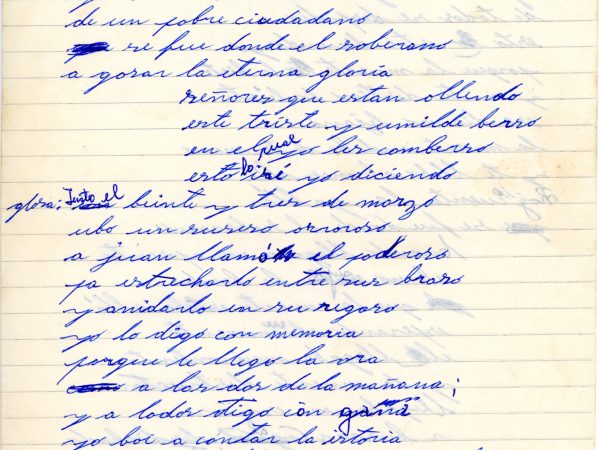 de un pobre ciudadano
se fue donde el soberano
a gosar la eterna gloria
señores que estan ollendo
este triste y umilde berso
en el cual yo les comberso
esto lo iré yo diciendo
glosa: Justo el beinte y tres de marzo
ubo un suseso orroroso
a juan llamó el poderoso
pa estracharlo entre sus braso
y anidarlo en su regaso
yo lo digo con memoria
porque le llego la ora
a las dos de la mañana;
y a todos digo con gana
yo boi a contar la istoria